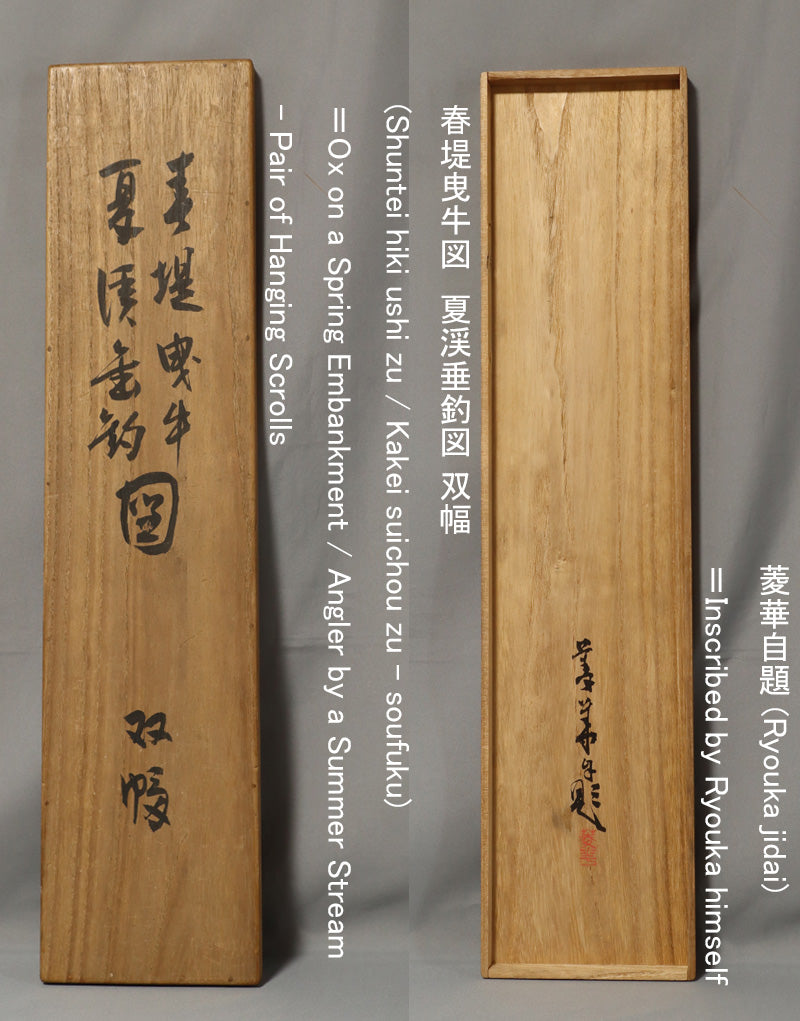 春堤曳牛
夏渓垂釣
圖
双幅
春堤曳牛図 夏渓垂釣図 双幅
(Shuntei hiki ushi zu / Kakei suichou zu – soufuku)
=Ox on a Spring Embankment / Angler by a Summer Stream
– Pair of Hanging Scrolls
菱華自題
菱華自題 (Ryouka jidai)
=Inscribed by Ryouka himself